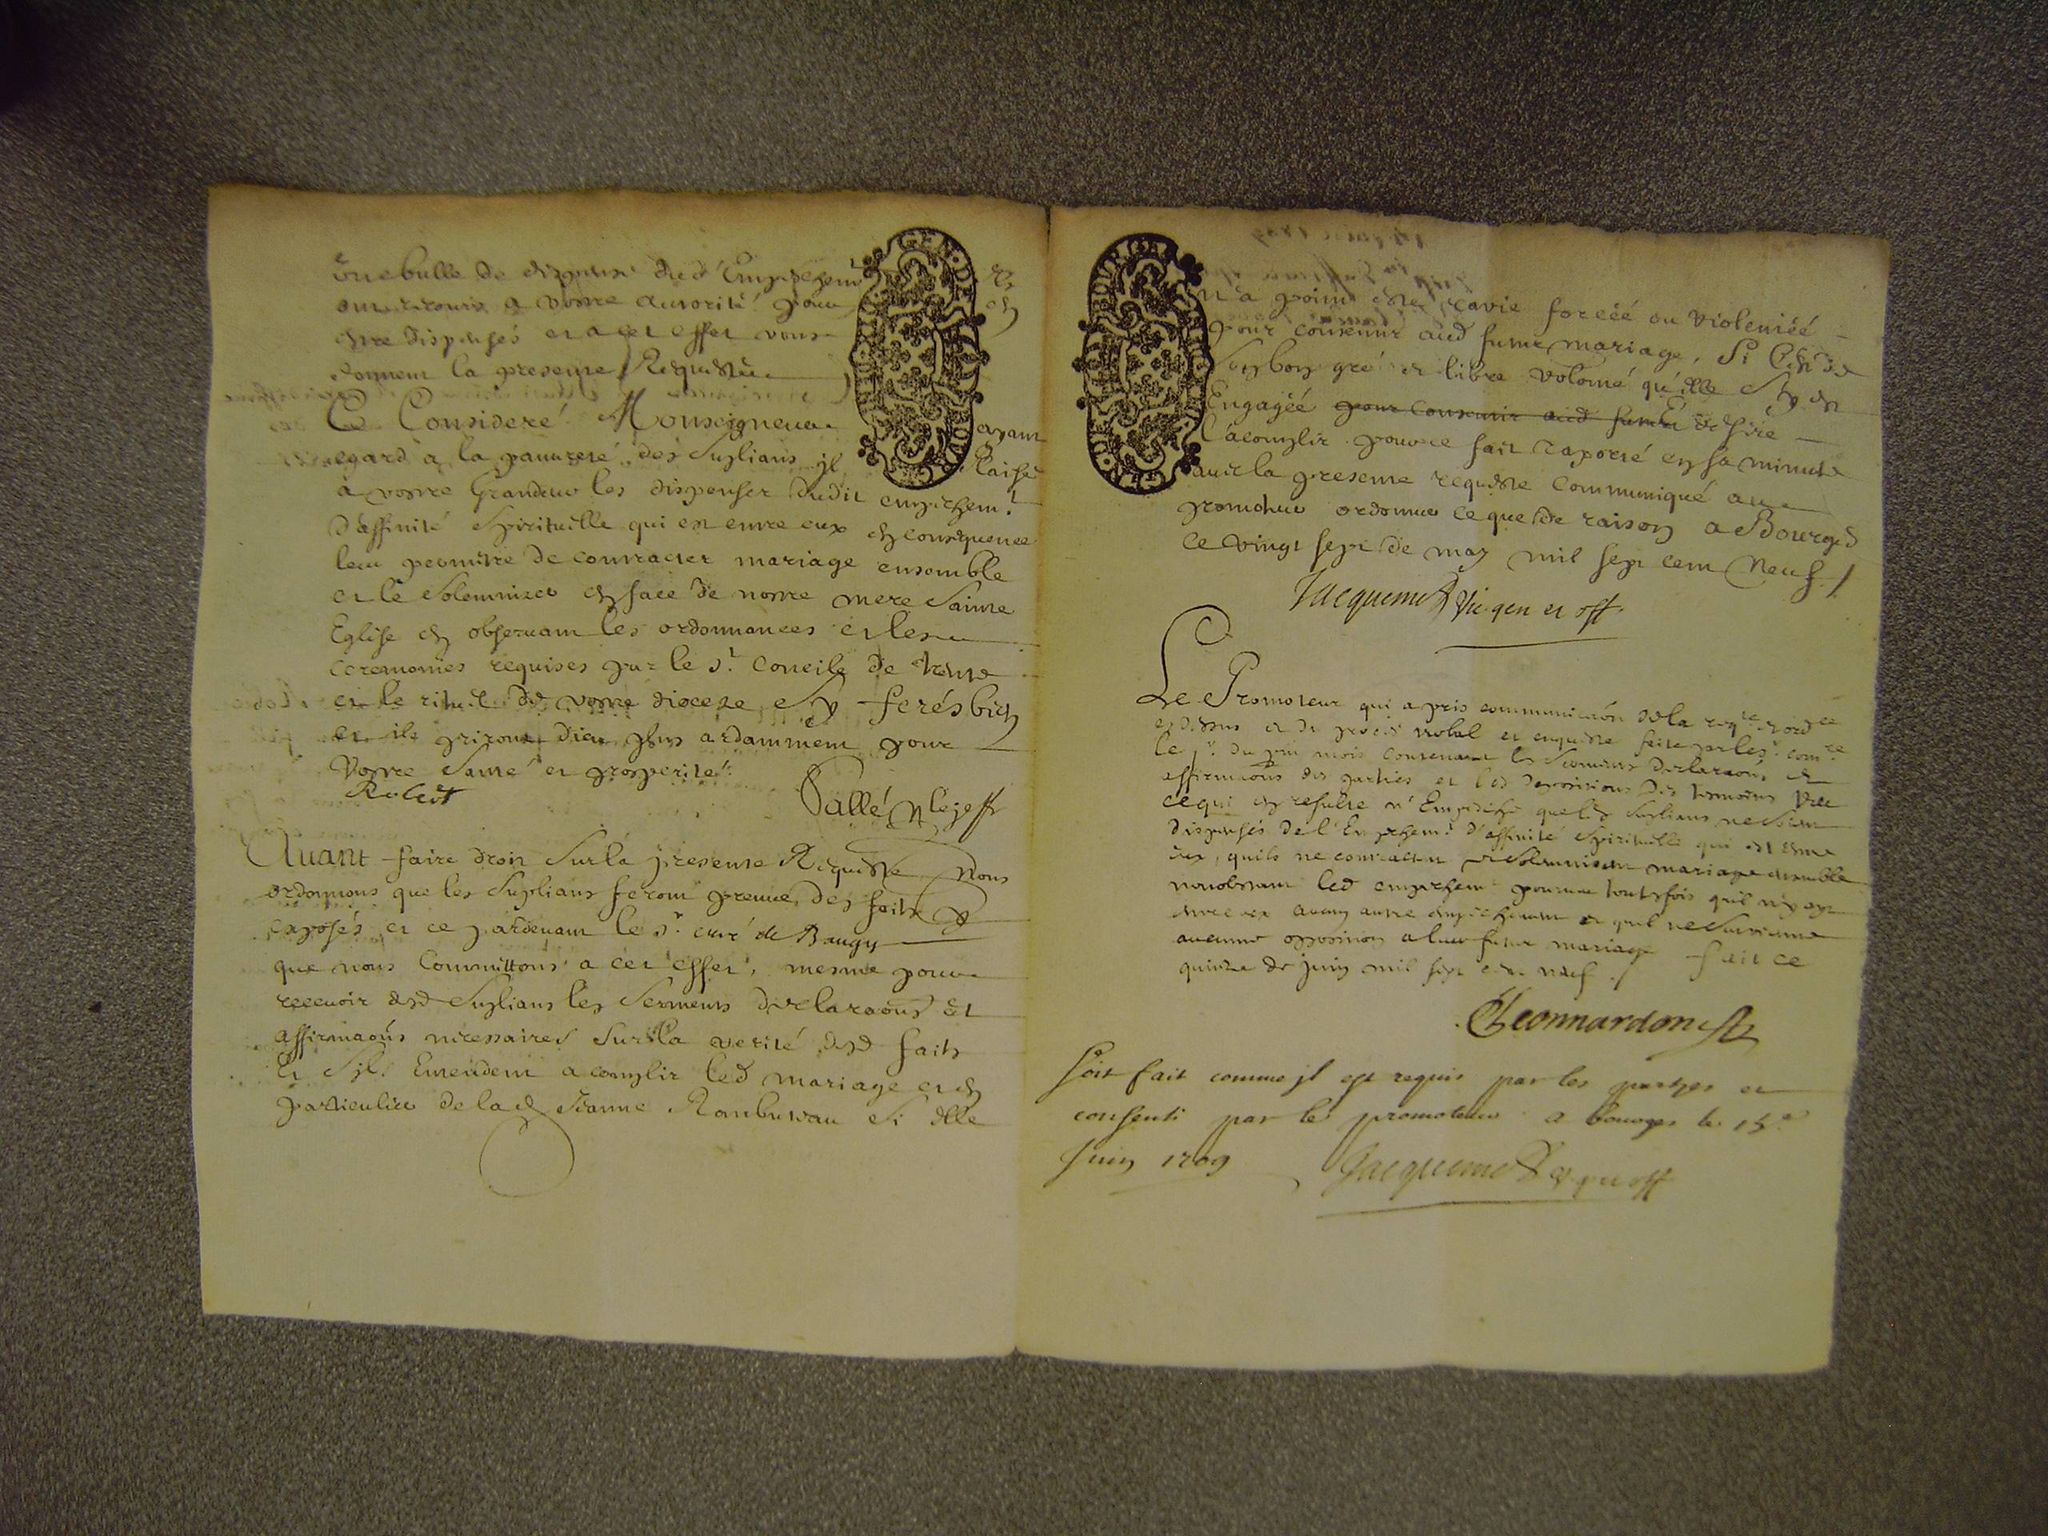 une bulle de dispense dud Empeschemt
ont recours a vostre autorité pour
estre dispensés et a cet effet vous
donnent la presente Requeste
Ce Consideré Monseigneur ayant
egard à la pauureté des Suplians jl Plaise
à vostre Grandeur les dispenser dudit empeschemt
d'affinité Spirituelle qui est entre eux en consequence
leur permettre de contracter mariage ensemble
et le Solemniser en face de nostre mere Sainte
Eglise en obseruant les ordonnances et les
ceremonies requises par le st. Concile de trente
et le rituel de vostre diocese et ferés bien
et ils priront dieu plus ardamment pour
Vostre Santé et prosperité
Robert
Sallé
Auant faire droit Sur la presente Requeste Nous
ordonnons que les Suplians feront preuue des faits
exposés et ce pardeuant le sr. curé de Baugy
que nous Committons a cet effet, mesme pour
receuoir desd Suplians les Serments declaraõns et
affirmaõns necessaires Sur la verité desd faits
et Sils Entendent acomplir led mariage et en
particulier de lad Jeanne Ranbureau Si elle
n'a point esté ravie forcéé ou violentéé
pour consentir aud futur mariage, Si C'est de
Son bon gré et libre volonté qu'elle s'y est
Engagéé pour consentir aud futur et desire
l'acomplir pour ce fait raporté en sa minute
auec la presente requeste communiqué au
promoteur ordonner ce que de raison a Bourges
ce vingt sept de may mil sept cent neuf
Jacquemet vic gen et off
Le Promoteur qui a pris communicaõn de la reqte et ordce
cy dessus et du procés verbal et enqueste faite par le sr. comre
le jr. du pnt mois contenant les Serments declaraõns et
affirmaõns des parties et les depositions des temoins Veu
ce qui en resulte n'Empesche que les Suplians ne soient
dispensés de l'Empeschemt d'affinité Spirituelle qui est entre
eux, quils ne contractent et Solemnisent mariage ensemble
nonobstant led empeschemt pourueu toutesfois quil n'y ayt
entre eux aucun autre empeschement et quil ne Suruienne
aucunne opposition a leur futur mariage fait ce
quinze de juin mil sept cent neuf
Leonnardon
Soit fait comme jl est requis par les partyes et
consenti par le promoteur a bourges le 15e
Juin 1709 Jacquemet